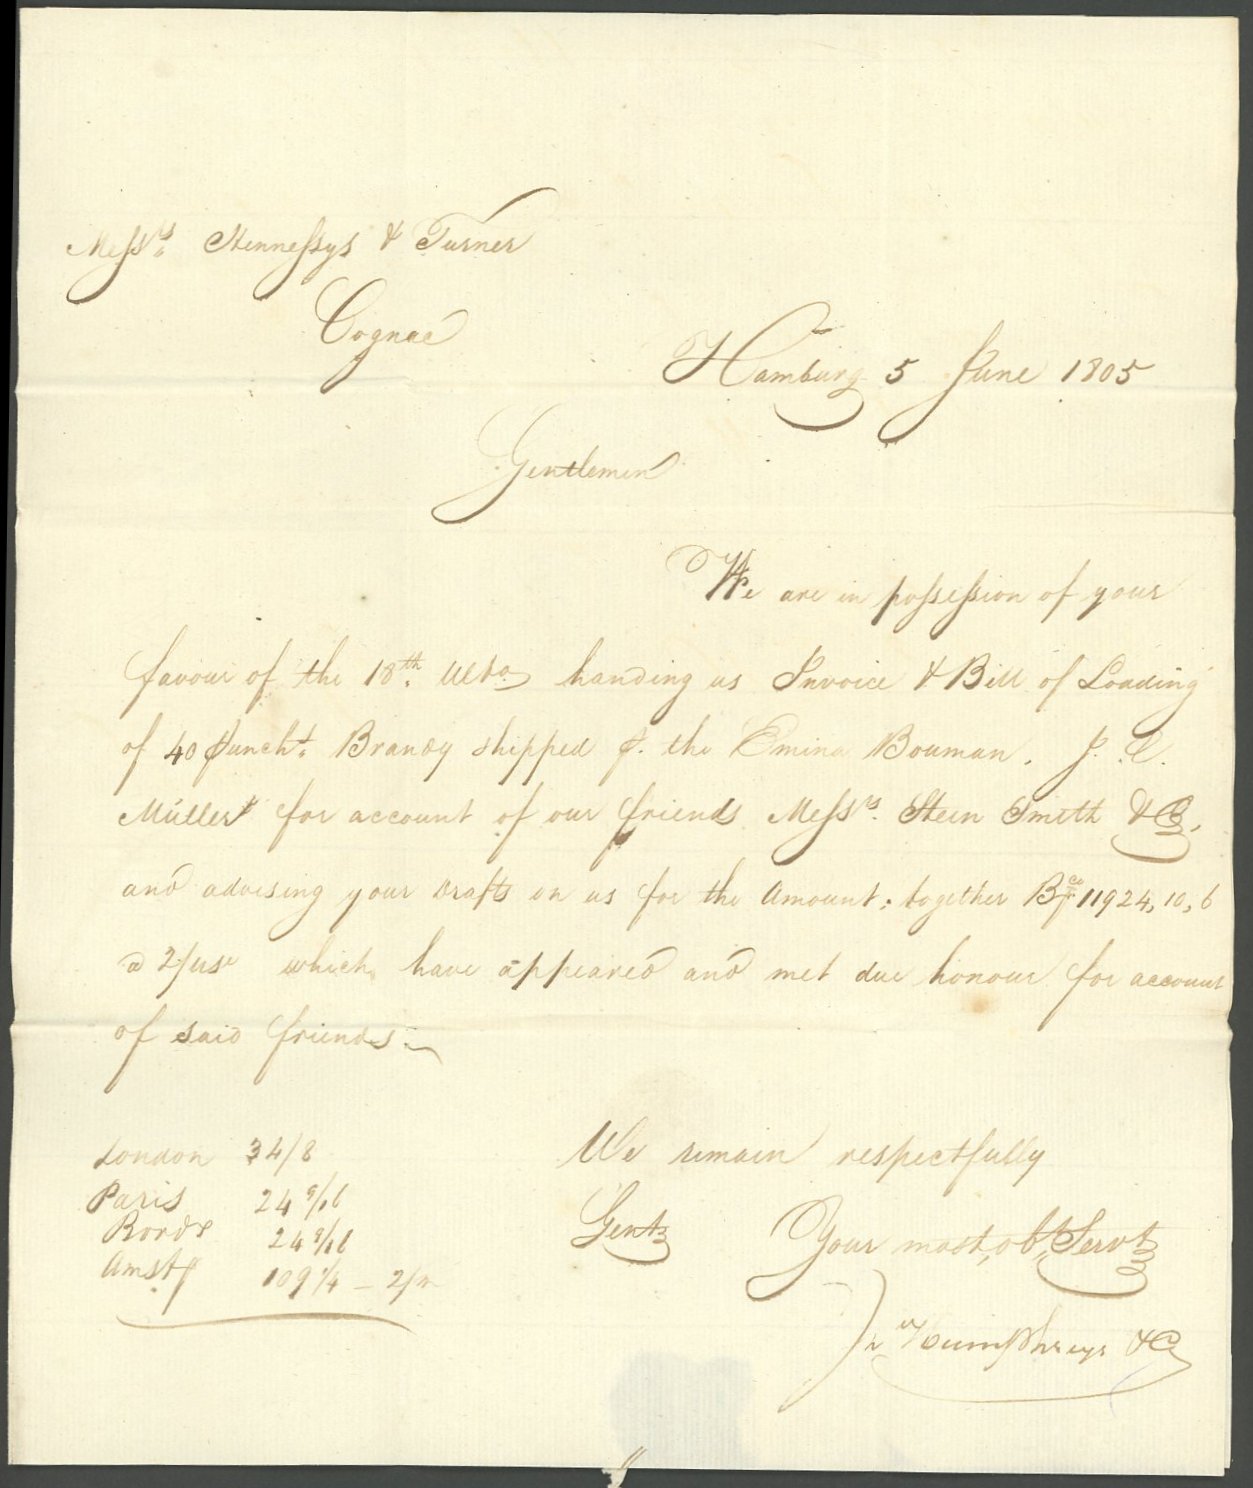 Messrs. Hennessys & Turner
Cognac
Hamburg 5 June 1805
Gentlemen
We are in possession of your
favour of the 18th. Ulto handing us Invoice & Bill of Loading
of 40 Punchs. Brandy shipped p. the Emina Bouman, J. C.
Müller for account of our friends Messrs. Stein Smith & Co,
and advising your Drafts on us for the Amount; together Bco 11924, 10, 6
a 2/use which, have appeared and met due honour for account
of said friends.
London 34/8
Paris 24 9/16
Bordx 24 9/16
Amstd 109 1/4 – 2/m
We remain respectfully
Gents
Your most, obt, Servts
Humphreys & Co